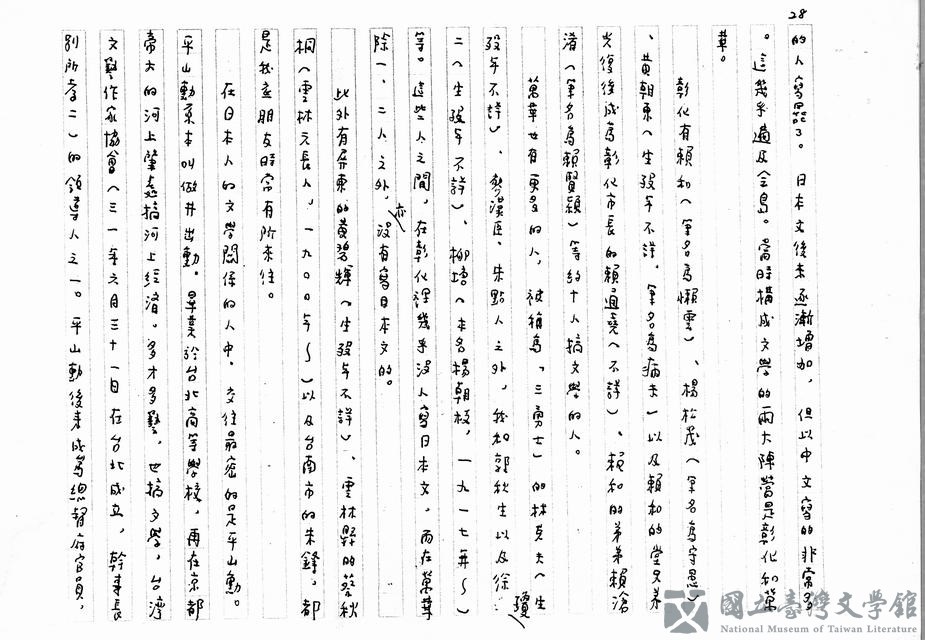 28
的人寫罷了。日本文後來逐漸增加，但以中文寫的非常多
。這幾乎遍及全島。當時構成文學的兩大陣營是彰化和萬
華。
彰化有賴和（筆名為懶雲）、楊松茂（筆名為守愚）
、黃朝東（生歿年不詳，筆名為病夫）以及賴和的堂兄弟
光復後成為彰化市長的賴通堯（不詳）、賴和的弟弟賴滄
洧（筆名為賴賢穎）等約十人搞文學的人。
萬華也有更多的人，被稱為「三勇士」的林克夫（生
歿年不詳）、廖漢臣、朱點人之外，我和郭秋生以及徐瓊
二（生歿年不詳）、柳塘（本名楊朝枝，一九一七年～）
等。這些人之間，在彰化裡幾乎沒人寫日本文，而在萬華
除一、二人之外，亦沒有寫日本文的。
此外有屏東的黃碧輝（生歿年不詳）、雲林縣的蔡秋
桐（雲林元長人，一九〇〇年～）以及台南市的朱鋒，都
是我這朋友時常有所來往。
在日本人的文學關係的人中，交往最密的是平山勳。
平山勳原本叫做井出勳。畢業於台北高等學校，再在京都
帝大的河上肇處搞河上經濟。多才多藝，也搞文學，台灣
文藝作家協會（三一年六月三十一日在台北成立，幹事長
別所孝二）的領導人之一。平山勳後來成為總督府官員，
國立臺灣文學館
National Museum of Taiwan Literature